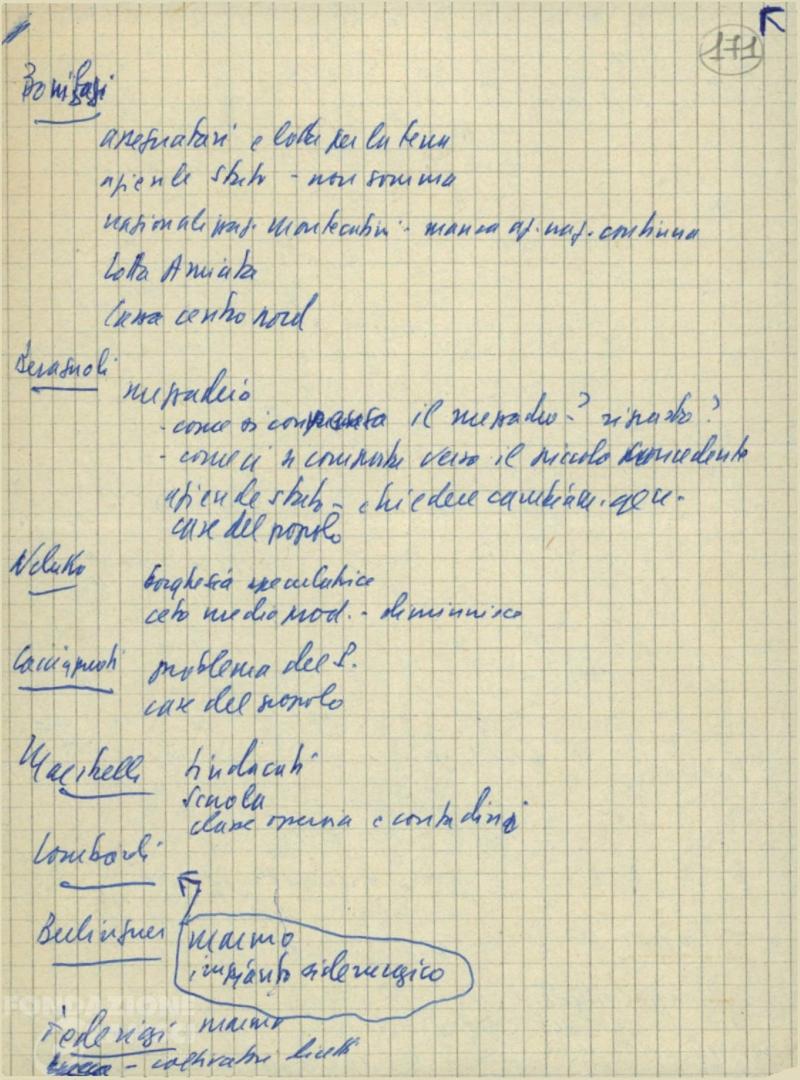 171
Bonifazi
assegnatari e lotta per la terra
aziende stato - non somma
nazionalizzaz. Montecatini - manca az. naz. continua
Lotta Amiata
Cassa centro nord
Beragnoli
mezzadria
- come si compensa il mezzadro? riparto?
- come ci si comporta verso il piccolo concedente
aziende stato - chiedere cambiam. gen.
case del popolo
borghesia speculatrice
ceto medio prod. - diminuisce
Cacciapuoti
problema del P.
case del popolo
sindacati
scuola
classe operaia e contadini
Lombardi
Berlinguer
marmo
impianto siderurgico
FONDAZIONE
Federigi
marmo
- coltivatori diretti